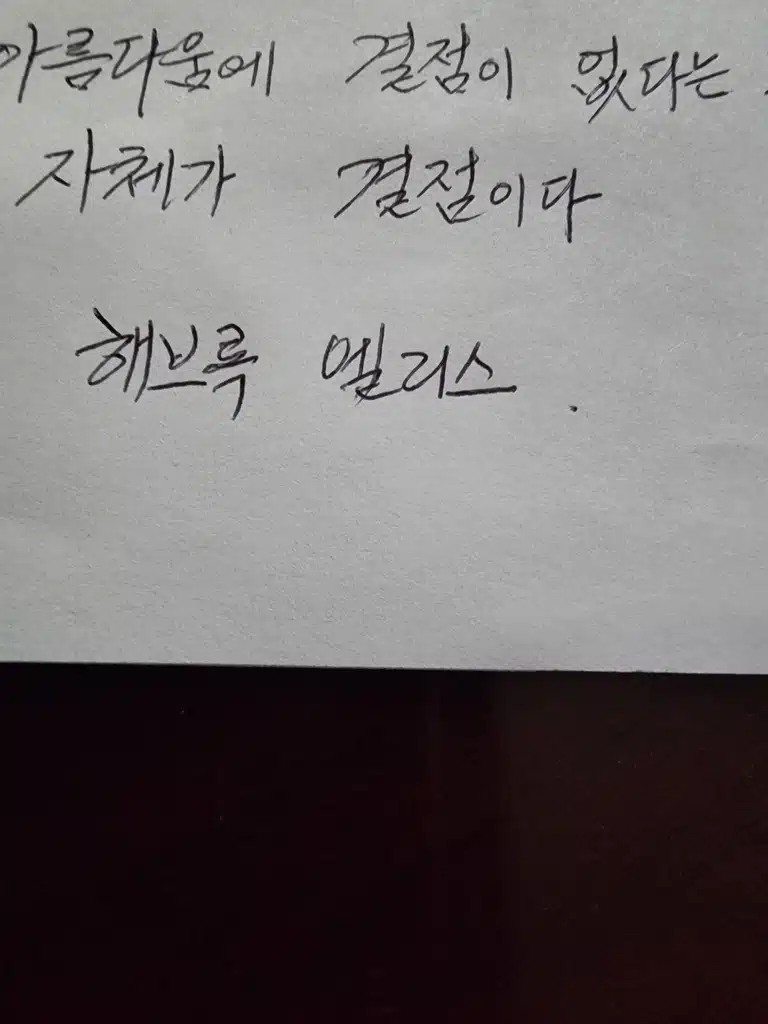 아름다움에 결점이 없다는
자체가 결점이다
해브룩 엘리스.